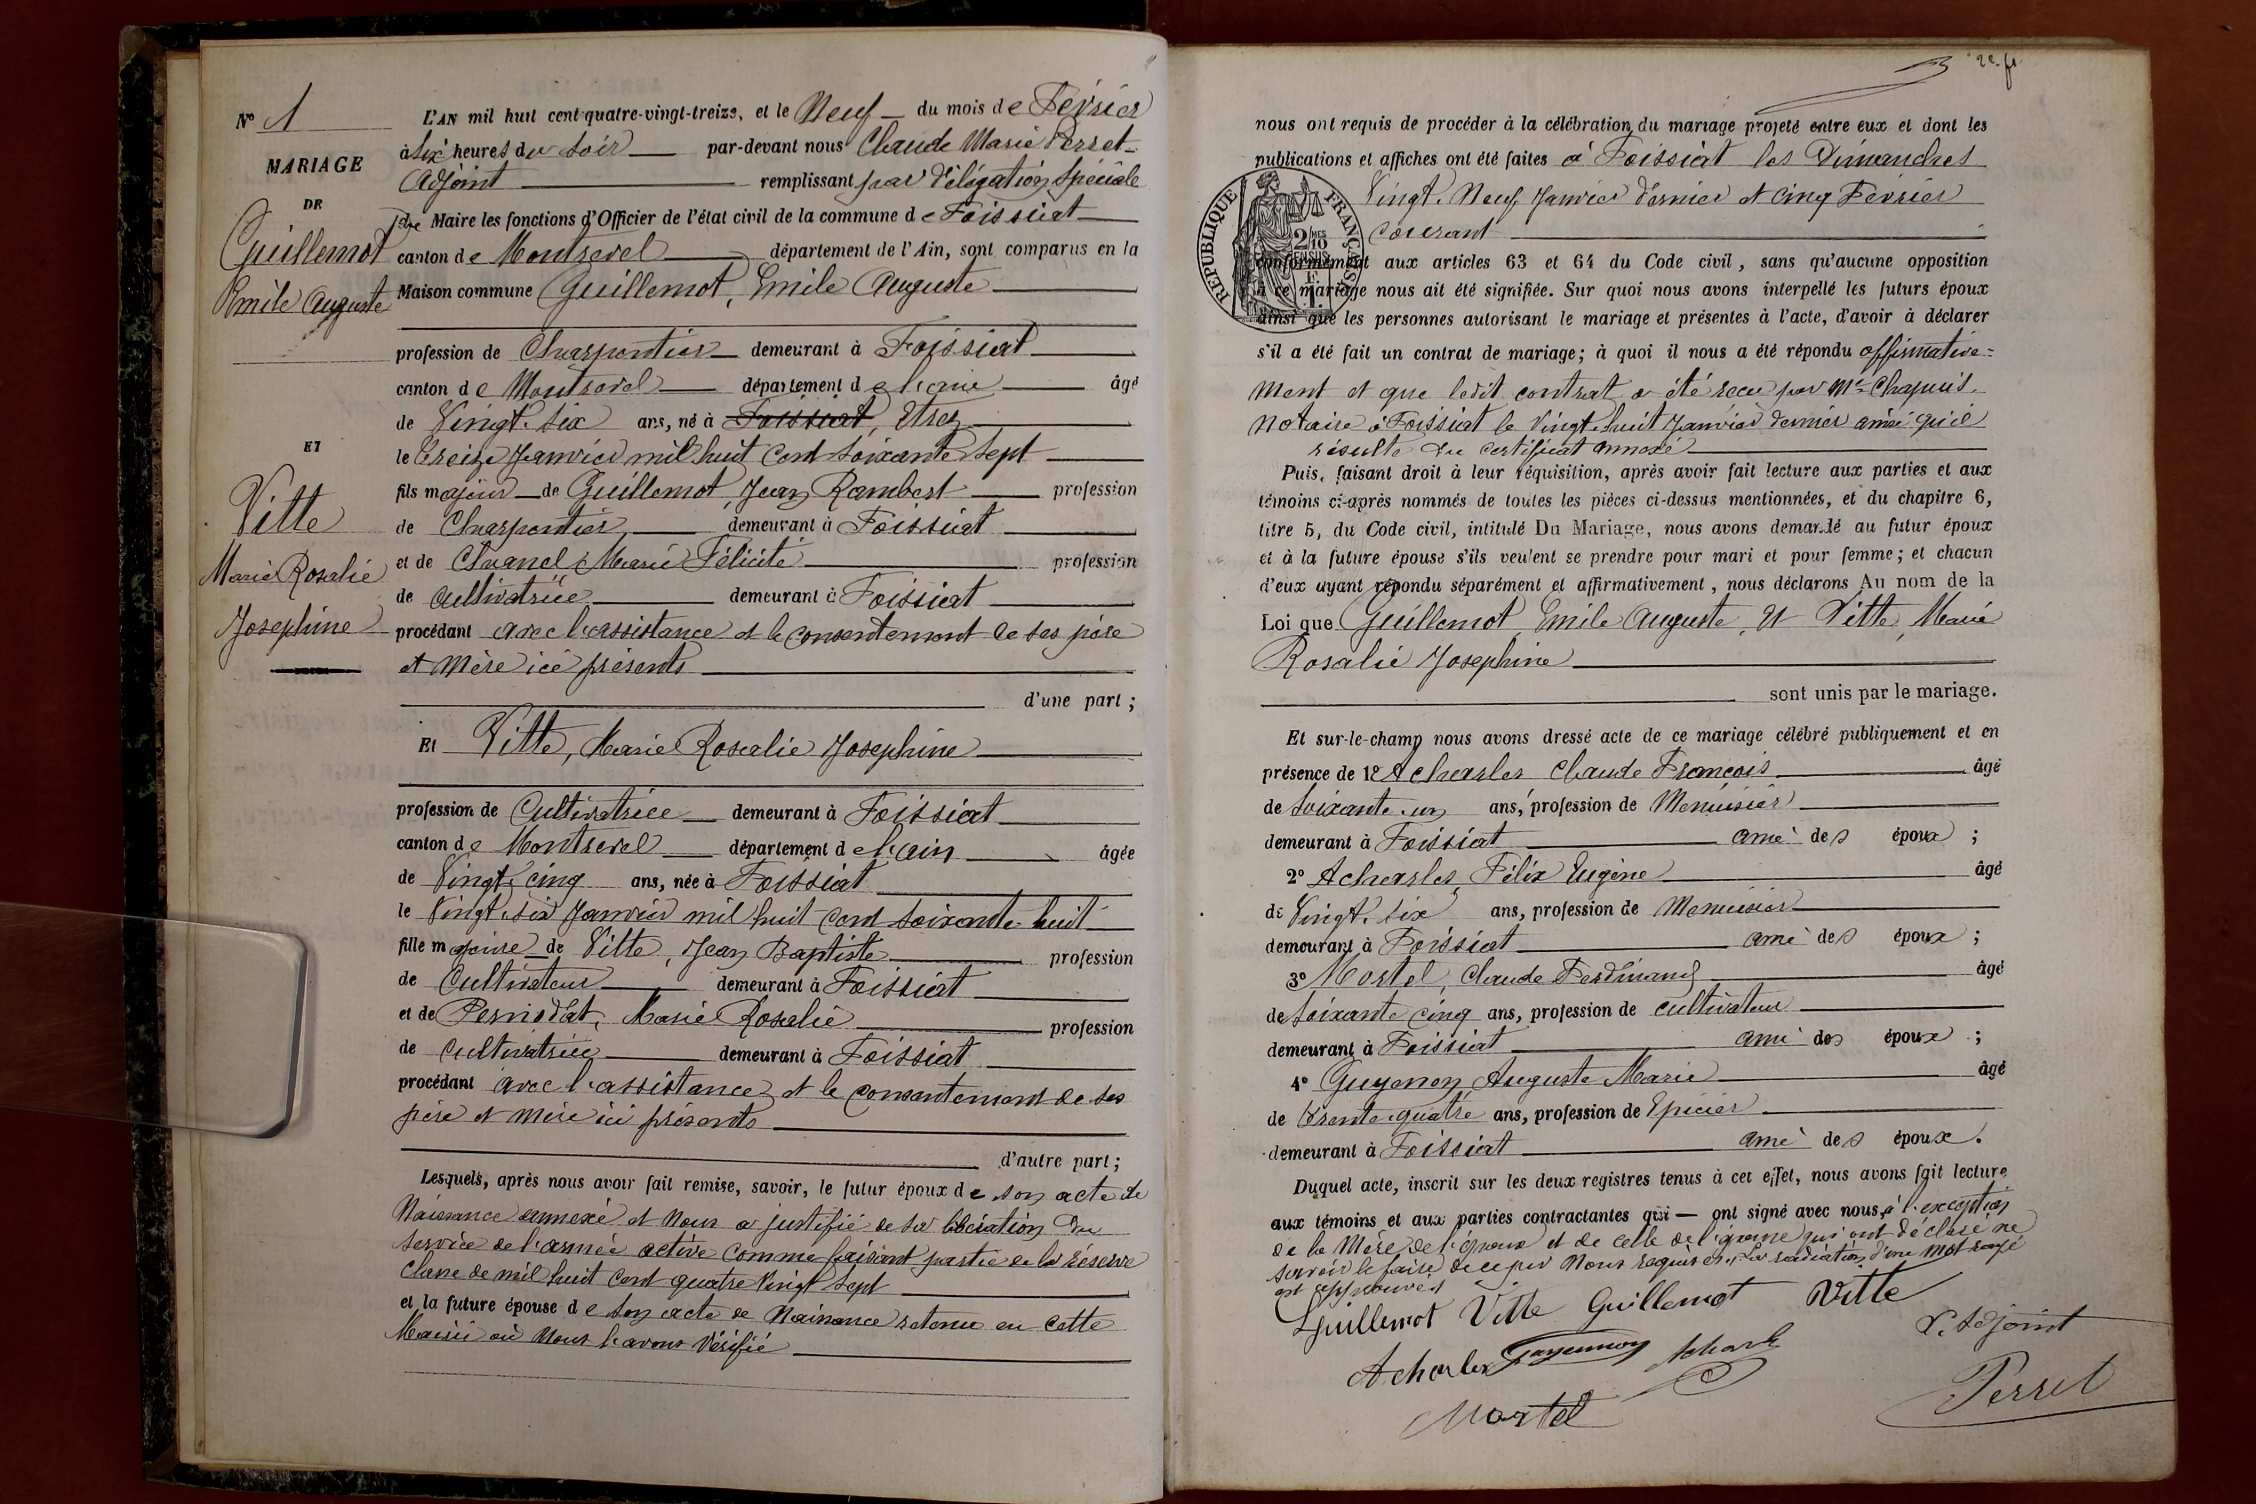 N° 1
MARIAGE
DE
Guillemot
Emile Auguste
ET
Vitte
Marie Rosalie
Josephine
L'AN mil huit cent quatre-vingt-treize, et le Neuf du mois de Février
à Six heures du Soir par-devant nous Claude Marie Perret
Adjoint remplissant par délégation Spéciale
du Maire les fonctions d'Officier de l'état civil de la commune de Foissiat
canton de Montrevel département de l'Ain, sont comparus en la
Maison commune Guillemot, Emile Auguste
profession de Charpentier demeurant à Foissiat
canton de Montrevel département de l'ain âgé
de Vingt-six ans, né à Foissiat, Etrez
le Treize Janvier mil huit Cent Soixante Sept
fils majeur de Guillemot Jean Rambert profession
de Charpentier demeurant à Foissiat
et de Chanel Marie Félicité profession
de Cultivatrice demeurant à Foissiat
procédant avec l'assistance et le consentement de ses père
et mère ici présents
d'une part ;
Et Vitte, Marie Rosalie Josephine
profession de Cultivatrice demeurant à Foissiat
canton de Montrevel département de l'ain âgée
de Vingt cinq ans, née à Foissiat
le Vingt-six Janvier mil huit Cent Soixante huit
fille majeure de Vitte, Jean Baptiste profession
de Cultivateur demeurant à Foissiat
et de Perrodat, Marie Rosalie profession
de Cultivatrice demeurant à Foissiat
procédant avec l'assistance et le Consentement de ses
père et mère ici présents
d'autre part ;
Lesquels, après nous avoir fait remise, savoir, le futur époux de son acte de
Naissance annexé et Nous a justifié de sa libération du
Service de l'armée active Comme faisant partie de la réserve
Classe de mil huit Cent quatre Vingt Sept
et la future épouse de son acte de Naissance retenu en Cette
Mairie où Nous l'avons Vérifié
nous ont requis de procéder à la célébration du mariage projeté entre eux et dont les
publications et affiches ont été faites à Foissiat les Dimanches
Vingt-Neuf Janvier dernier et Cinq Février
Courant
RÉPUBLIQUE FRANÇAISE
conformément aux articles 63 et 64 du Code civil, sans qu'aucune opposition
à ce mariage nous ait été signifiée. Sur quoi nous avons interpellé les futurs époux
ainsi que les personnes autorisant le mariage et présentes à l'acte, d'avoir à déclarer
s'il a été fait un contrat de mariage ; à quoi il nous a été répondu affirmative=
ment et que ledit contrat a été recu par Me Chapuis
Notaire à Foissiat le Vingt-huit Janvier dernier ainsi qu'il
résulte du Certificat annexé
Puis, faisant droit à leur réquisition, après avoir fait lecture aux parties et aux
témoins ci-après nommés de toutes les pièces ci-dessus mentionnées, et du chapitre 6,
titre 5, du Code civil, intitulé Du Mariage, nous avons demandé au futur époux
et à la future épouse s'ils veulent se prendre pour mari et pour femme ; et chacun
d'eux ayant répondu séparément et affirmativement, nous déclarons Au nom de la
Loi que Guillemot Emile Auguste, Et Vitte, Marie
Rosalie Josephine
sont unis par le mariage.
Et sur-le-champ nous avons dressé acte de ce mariage célébré publiquement et en
présence de 1° Acharles Claude François âgé
de Soixante-un ans, profession de Menuisier
demeurant à Foissiat ami des époux ;
2° Acharles, Félix Eugène âgé
de Vingt-six ans, profession de Menuisier
demeurant à Foissiat ami des époux ;
3° Martel, Claude Ferdinand âgé
de Soixante Cinq ans, profession de cultivateur
demeurant à Foissiat ami des époux ;
4° Guyennon Auguste Marie âgé
de Trente-quatre ans, profession de Epicier
demeurant à Foissiat ami des époux.
Duquel acte, inscrit sur les deux registres tenus à cet effet, nous avons fait lecture
aux témoins et aux parties contractantes qui — ont signé avec nous, à l'exception
de la Mère de l'époux et de celle de l'épouse qui ont déclaré ne
savoir le faire de ce par Nous requises. La radiation d'un mot rayé
est approuvée
Guillemot Vitte Guillemot Vitte
L'Adjoint
Acharles Guyennon Acharles
Perret
Martel